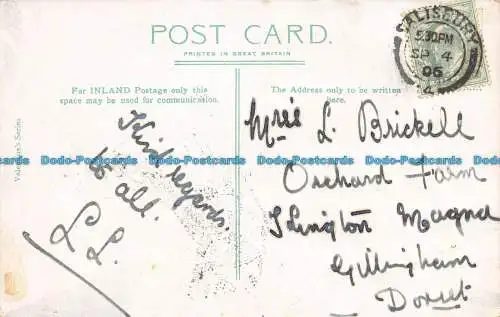 POST CARD.
PRINTED IN GREAT BRITAIN
For INLAND Postage only this
space may be used for communication.
The Address only to be written
here.
SALISBURY
5.30PM
SP 4
06
4
Kind regards
to all.
L.L.
Miss L. Brickell
Orchard Farm
Islington Magna
Gillingham
Dorset
Valentine's Series
Dodo-Postcards Dodo-Postcards Dodo-Postcards Dodo-Postcards Dodo-Postcards